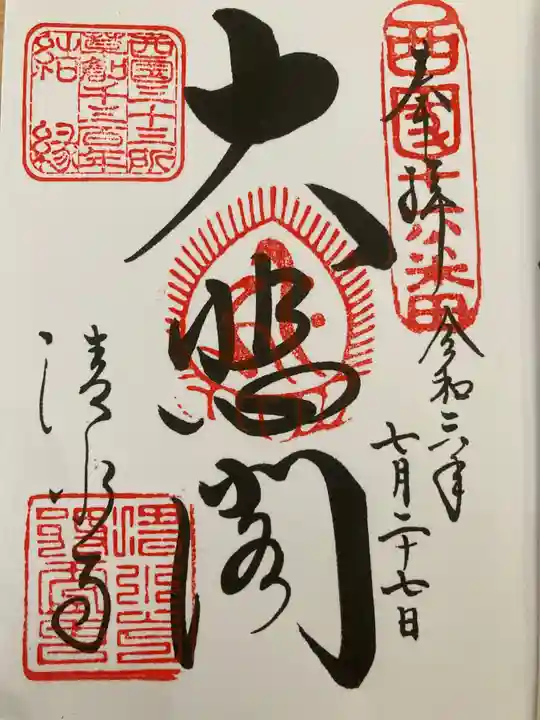 西國十六番
奉拝
令和六年
七月二十七日
大悲閣
清水寺
西國三十三所
草創千三百年
結縁